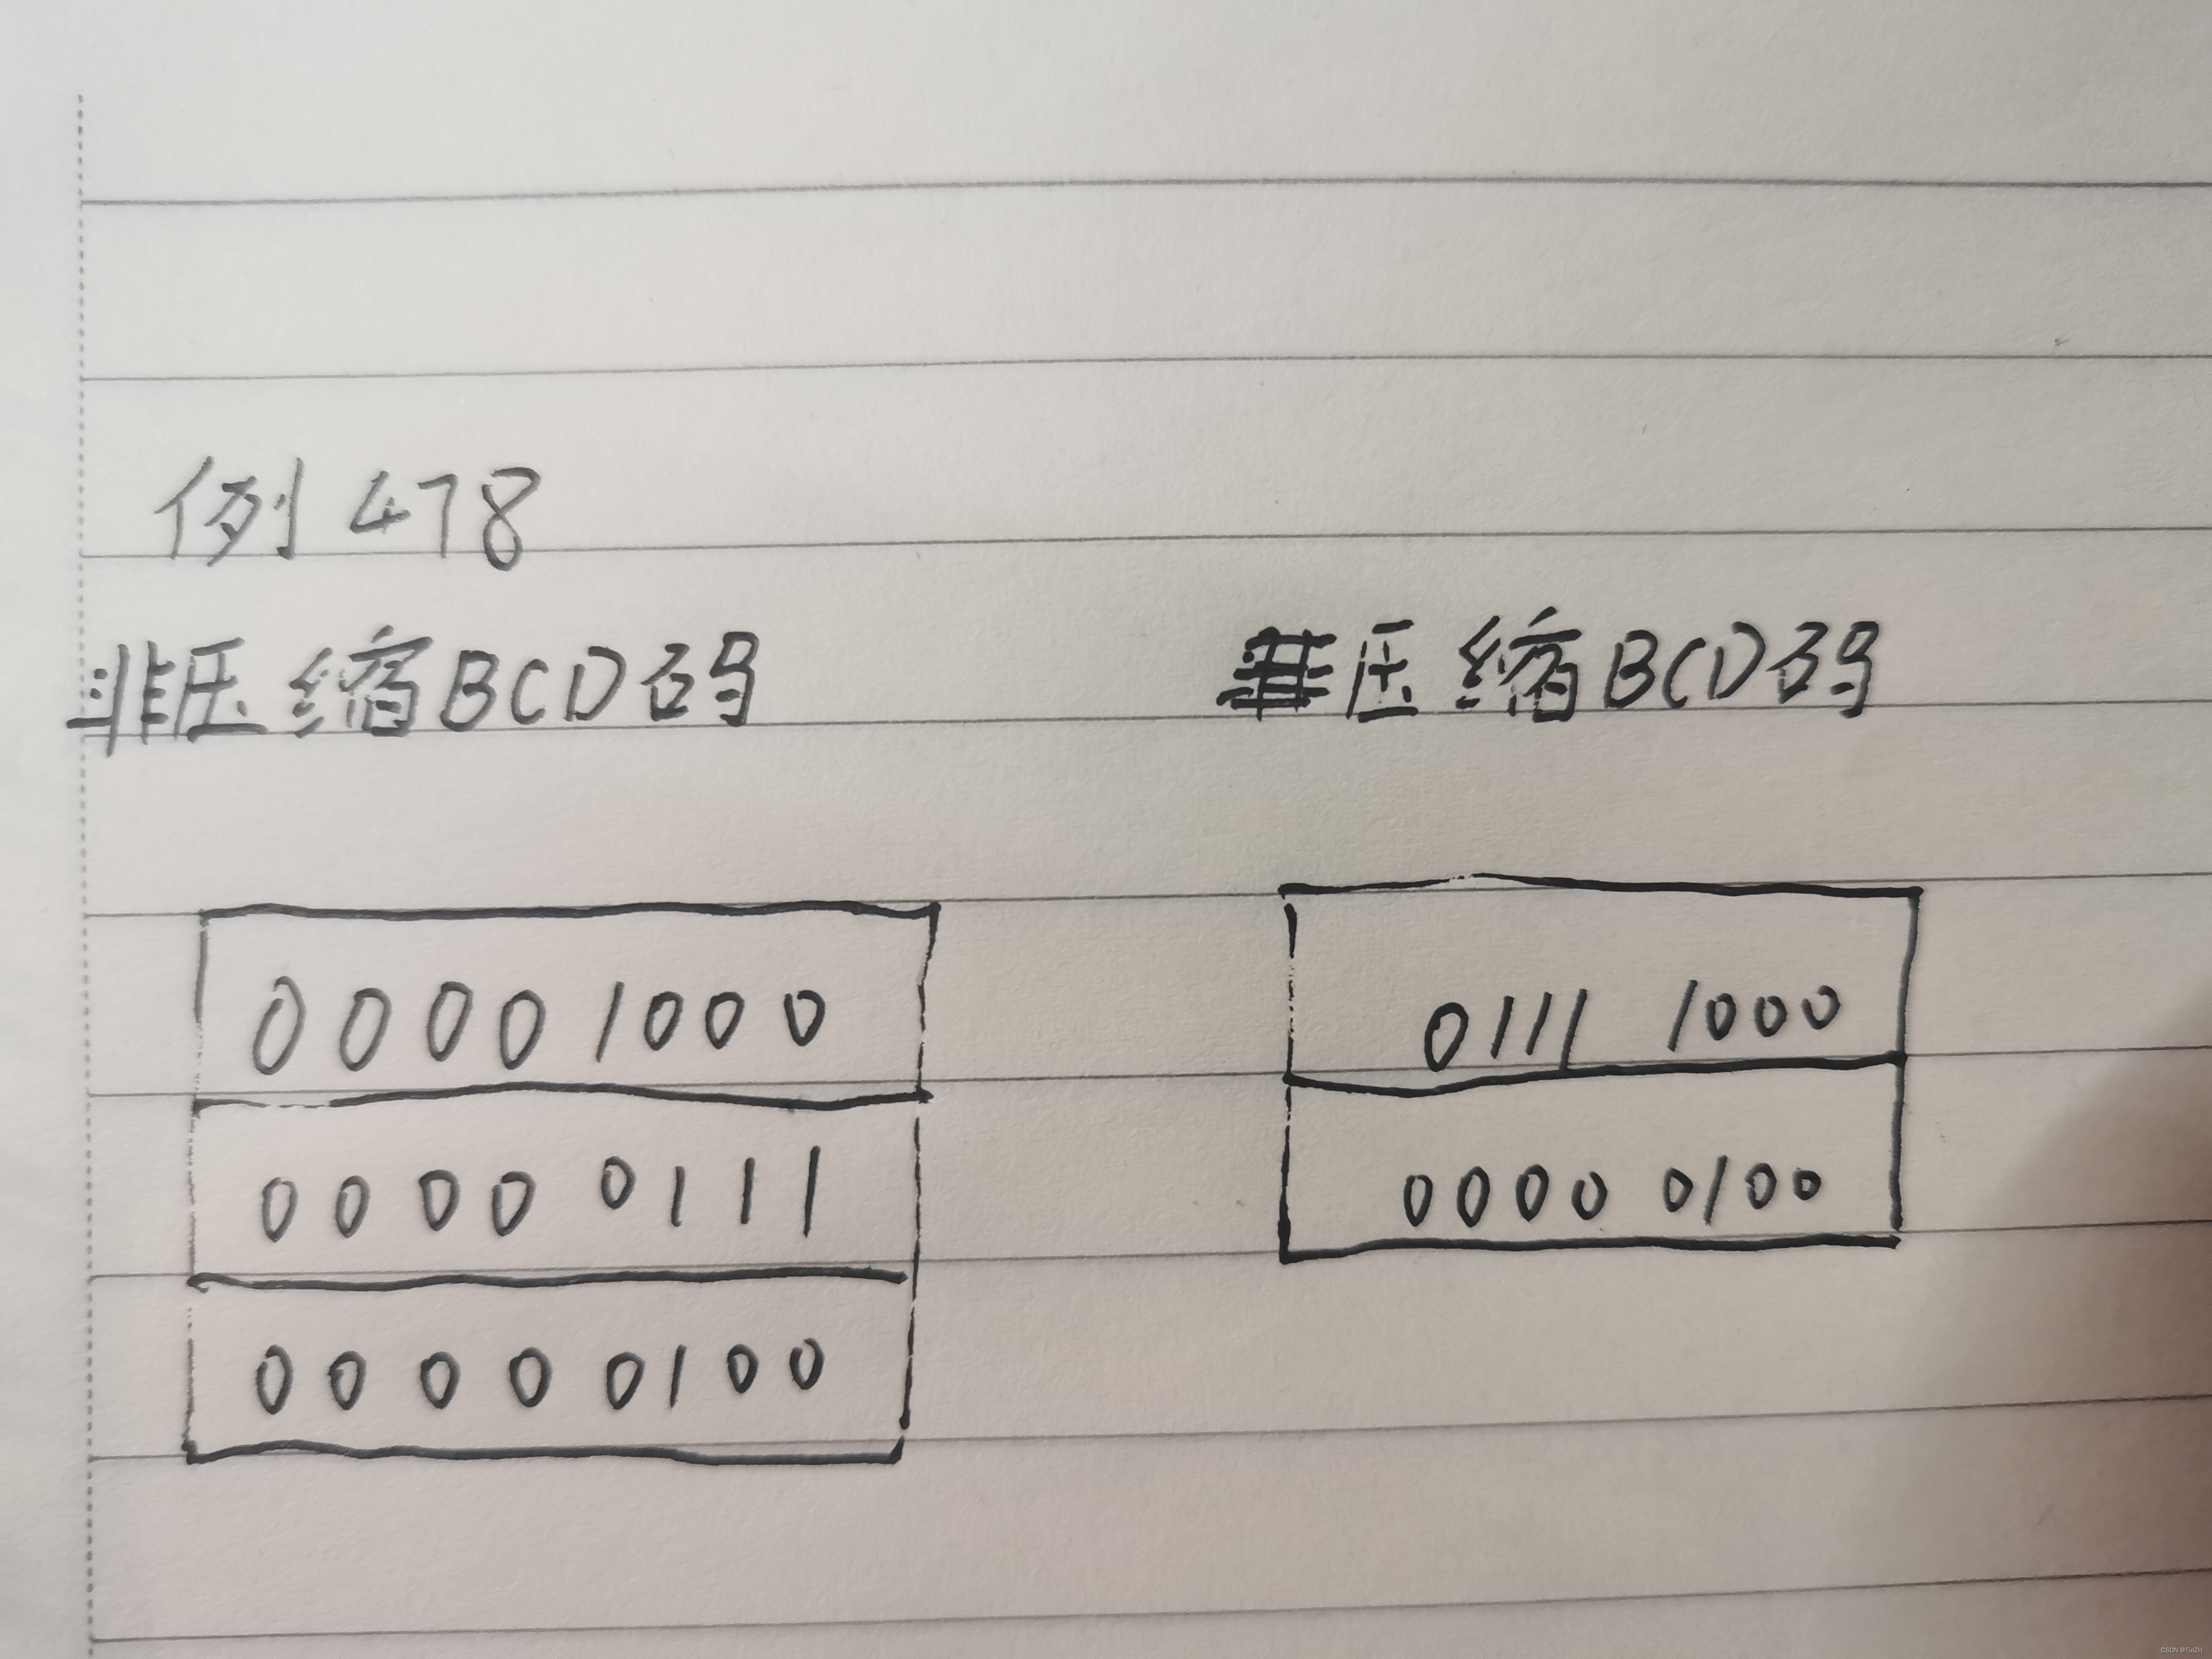 例 478
非压缩BCD码
压缩BCD码
0000 1000
0000 0111
0000 0100
0111 1000
0000 0100
CSDN @TieZH